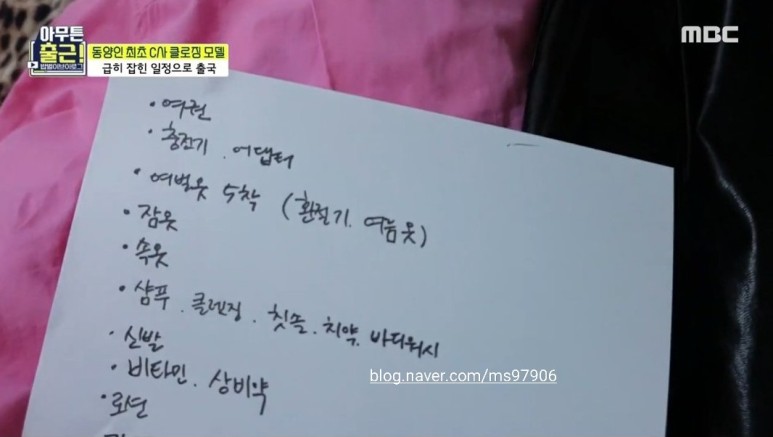 아무튼
출근!
밥벌이브이로그
동양인 최초 C사 클로징 모델
급히 잡힌 일정으로 출국
MBC
• 여권
• 충전기. 어댑터
• 여벌옷 5착 (환절기. 여름옷)
• 잠옷
• 속옷
• 샴푸. 클렌징. 칫솔. 치약. 바디워시
• 신발
• 비타민. 상비약
• 로션
blog.naver.com/ms97906